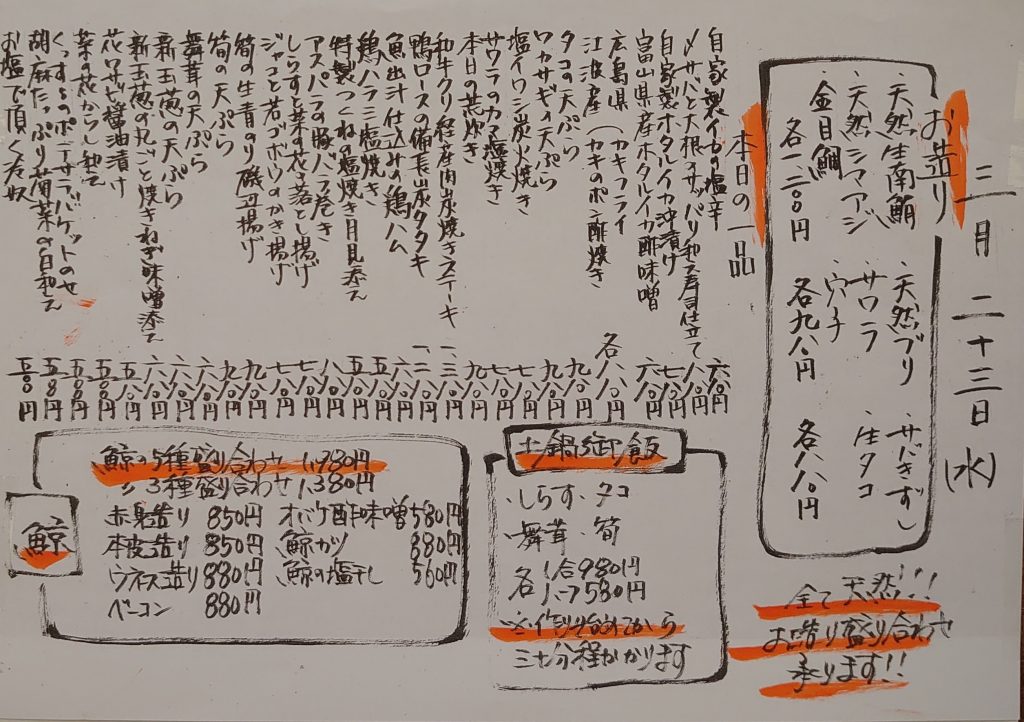 三月二十三日(水)
お造り
・天然生南鮪
・天然シマアジ
・金目鯛
各一、二八〇円
・天然ブリ
・サワラ
・穴子
各九八〇円
・サバきずし
・生タコ
各八八〇円
全て天然!!!
お造り盛り合わせ
承ります!!
本日の一品
自家製イカの塩辛 六八〇円
〆サバと大根のサッパリ和え寿司仕立て 八八〇円
自家製ホタルイカ沖漬け 七八〇円
富山県産ホタルイカ酢味噌 六八〇円
広島県 (カキフライ
江波産 (カキのポン酢焼き
各八八〇円
タコの天ぷら 九八〇円
ワカサギの天ぷら 九八〇円
塩イワシ炭火焼き 七八〇円
サワラのカマ塩焼き 九八〇円
本日の荒炊き
和牛クリ経産肉炭焼きステーキ
鴨ロースの備長炭タタキ
魚出汁仕込みの鶏ハム 六八〇円
鶏ハラミ塩焼き 五八〇円
特製つくねの塩焼き月見添え
アスパラの豚バラ巻き 八八〇円
しらすと菜の花き落とし揚げ
ジャコと若ゴボウのかき揚げ 七八〇円
筍の生青のり磯辺揚げ 九八〇円
筍の天ぷら 九八〇円
舞茸の天ぷら 六八〇円
新玉葱の天ぷら 六八〇円
新玉葱の丸ごと焼きねぎ味噌添え 六八〇円
花ワサビ醤油漬け 五八〇円
菜の花からし和え 五八〇円
くんずるのポテサラバケットのせ 五八〇円
胡麻たっぷり菊菜の白和え 五八〇円
お塩で頂く冷奴 五〇〇円
土鍋御飯
・しらす・タコ
・舞茸・筍
各1合980円
各ハーフ580円
※作り始めてから
三十分程かかります
鯨
鯨の5種盛り合わせ 1,980円
〃 3種盛り合わせ 1,380円
赤身造り 850円 オバケ酢味噌 580円
本皮造り 850円 鯨カツ 880円
ウネス造り 880円 鯨の塩干し 560円
ベーコン 880円